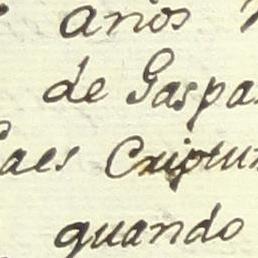 anos
de Gaspa
aes Criptu
quando